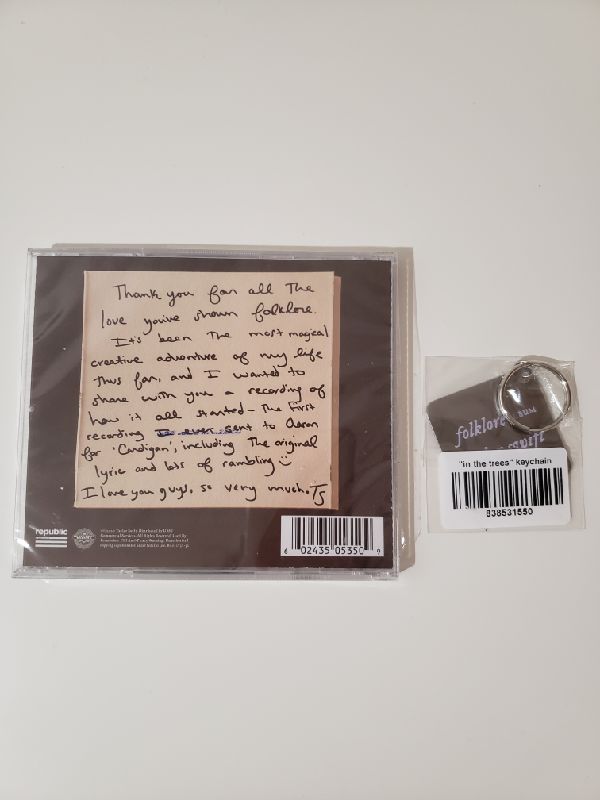 Thank you for all The
love you've shown folklore.
It's been The most magical
creative adventure of my life
thus far, and I wanted to
share with you a recording of
how it all started - The First
recording I ever sent to Aaron
for 'Cardigan', including The original
lyric and lots of rambling :)
I love you guys, so very much. TS
republic
6 02435 05350 9
folklore
"in the trees" keychain
838531550